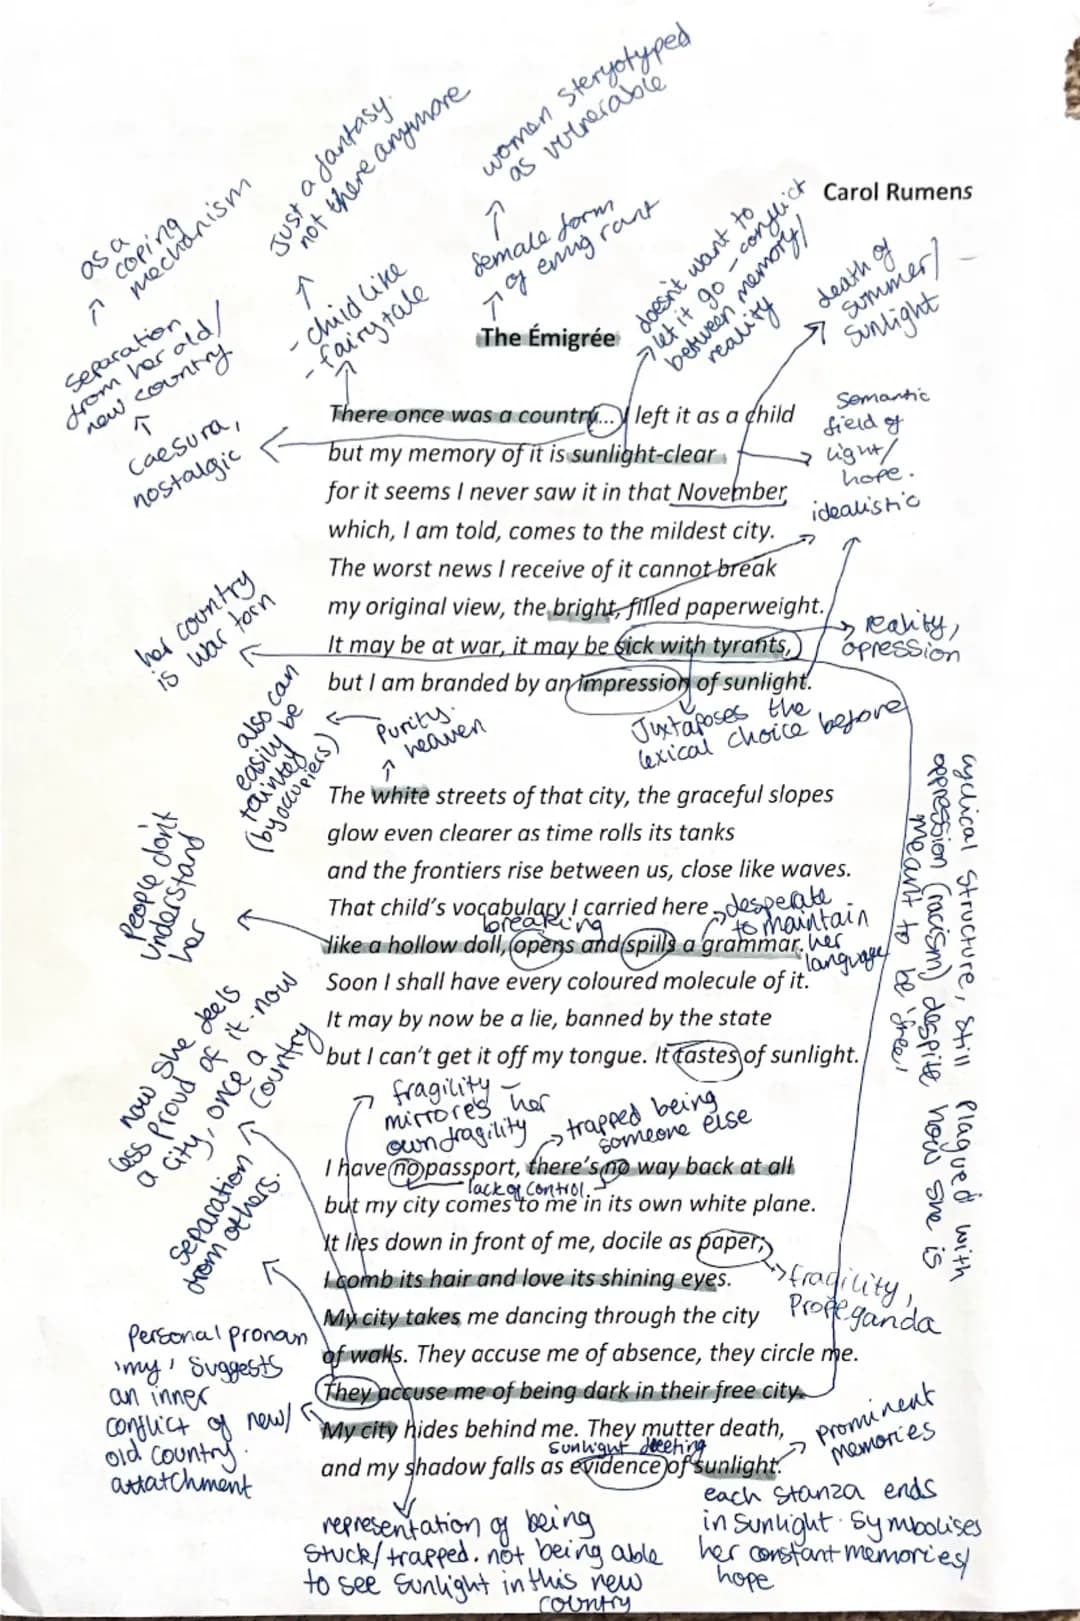 women steryotyped
as vulnerable
Just a fantasy.
not there anymore
as a
coping
mechanism
Carol Rumens
female form
of emigrant
doesn't want to
let it go - conflict
between memory/
reality
death of
summer/
sunlight
- child like
- fairytale
separation
from her old/
new country
The Émigrée
caesura,
nostalgic
Semantic
field of
light/
hope.
idealistic
There once was a country... I left it as a child
but my memory of it is sunlight-clear
for it seems I never saw it in that November,
which, I am told, comes to the mildest city.
The worst news I receive of it cannot break
my original view, the bright, filled paperweight.
It may be at war, it may be sick with tyrants,
but I am branded by an impression of sunlight.
her country
is war torn
reality,
opression
Juxtaposes the
lexical choice before
Purity.
heaven
also can
easily be
tainted
(by occupiers)
The white streets of that city, the graceful slopes
glow even clearer as time rolls its tanks
and the frontiers rise between us, close like waves.
That child's vocabulary I carried here
breaking
like a hollow doll, opens and spills a grammar.
Soon I shall have every coloured molecule of it.
It may by now be a lie, banned by the state
but I can't get it off my tongue. It tastes of sunlight.
desperate
to maintain
her
language
People don't
understand
her
cyclical structure, still plagued with
oppression (racism) despite how she is
meant to be 'free'
now she feels
less proud of it. now
a city, once a
country
fragility -
mirrores her
own fragility
trapped being
someone else
I have no passport, there's no way back at all
lack of control.
but my city comes to me in its own white plane.
It lies down in front of me, docile as paper;
I comb its hair and love its shining eyes.
My city takes me dancing through the city
of walls. They accuse me of absence, they circle me.
They accuse me of being dark in their free city.
My city hides behind me. They mutter death,
sunlight fleeting
and my shadow falls as evidence of sunlight.
separation
from others.
fragility,
Propeganda
Personal pronoun
'my' suggests
an inner
conflict of new/
old country
attatchment
prominent
memories
representation of being
stuck/trapped. not being able
to see sunlight in this new
country
each stanza ends
in sunlight. Symbolises
her constant memories/
hope